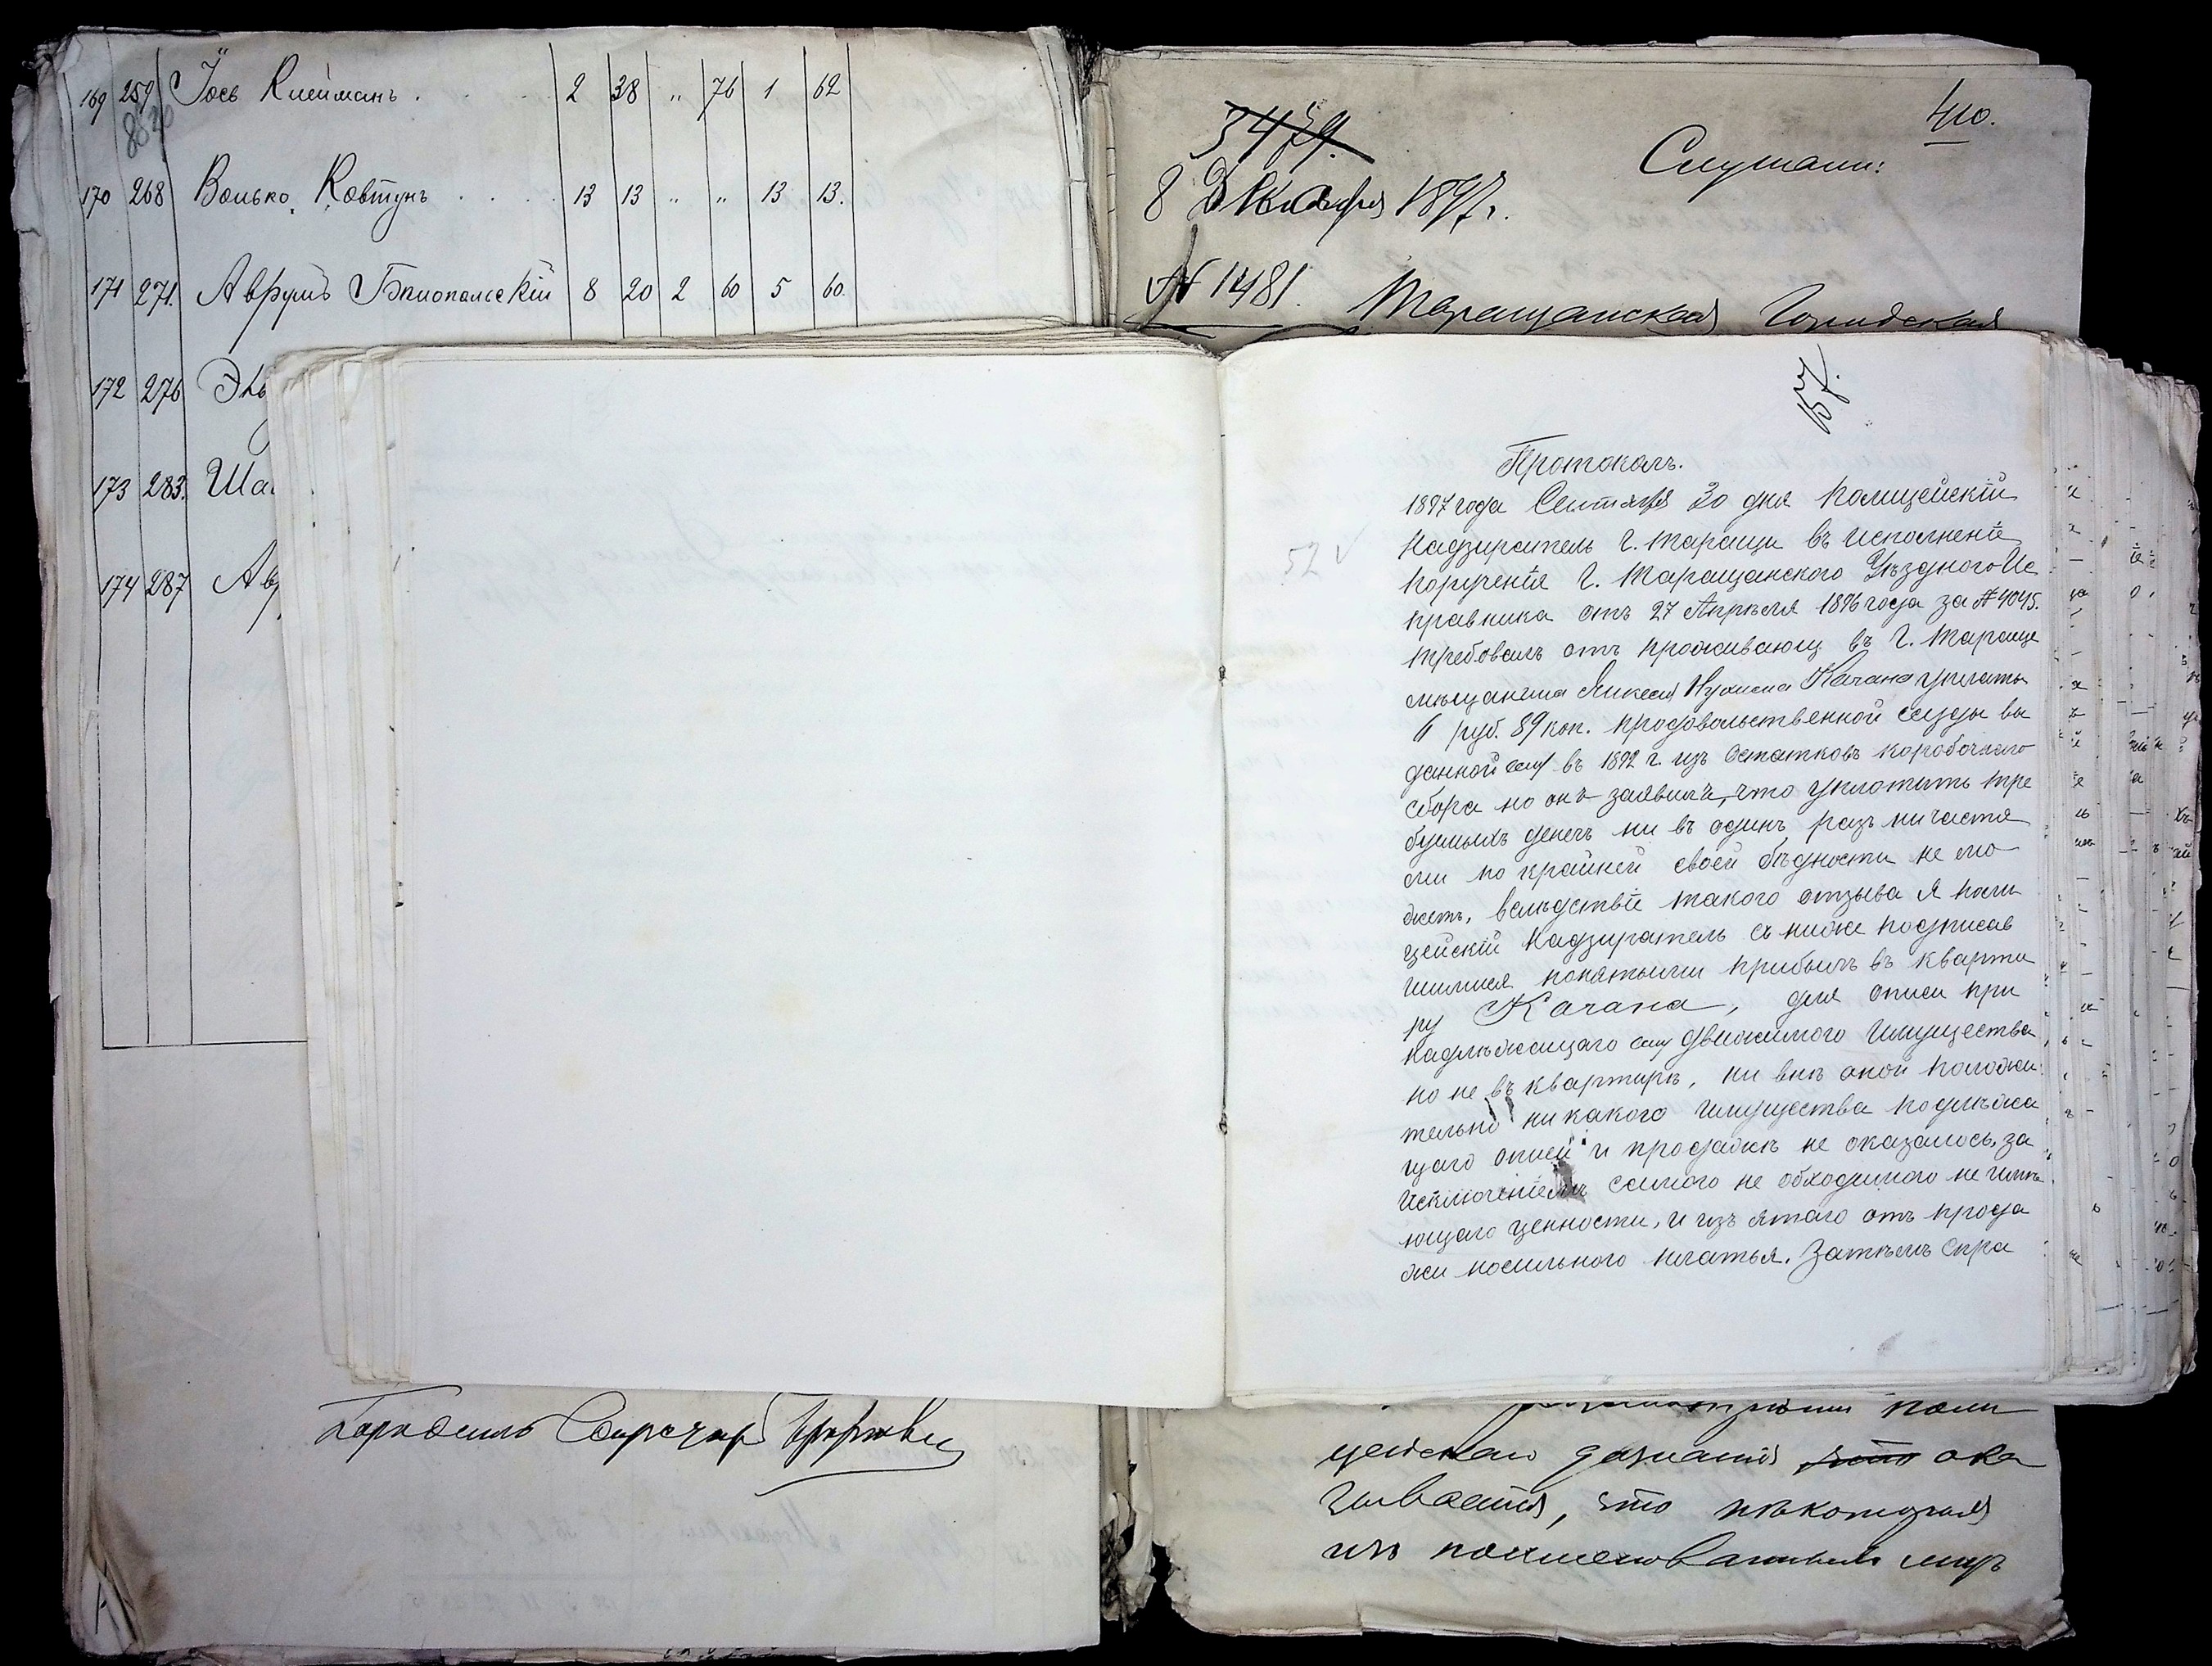 169 259 Іось Клейманъ . 2 38 " 76 1 62
170 268 Волько Ковтунъ . . . . 13 13 " " 13 13.
171 271. Аврумъ Бялопольскій 8 20 2 60 5 60.
172 276
173 283.
174 287
410.
3479.
Слушали:
8 Декабря 1897 г.
№ 1481.
Таращанская Городская
157.
52 v
Протоколъ.
1897 года Сентября 30 дня Полицейскій
Надзиратель г. Таращи въ исполненіе
порученія Г. Таращанскаго Уѣзднаго Ис
правника отъ 27 Апрѣля 1896 года за № 4045.
требовалъ отъ проживающ въ г. Тараще
мѣщанина Качана уплаты
6 руб. 89 коп. продовольственной ссуды вы
данной ему въ 1892 г. изъ остатковъ коробочнаго
сбора но онъ заявилъ, что уплотить тре
буемыхъ денегъ ни въ одинъ разъ ни частя
ми по крайней своей бѣдности не мо
жетъ, вслѣдствіе такого отзыва я Поли
цейскій Надзиратель съ ниже подписав
шимися понятыми прибылъ въ кварти
ру Качана, для описи при
надлѣжащаго ему движимого имущества
но не въ квартирѣ, ни внѣ оной положи
тельно никакого имущества подлѣжа
щаго описи и продажѣ не оказалось, за
исключеніемъ самого не обходимого не имѣ
ющаго ценности, и изъятаго отъ прода
жи носильного платья. Затѣмъ спра
поли
цейскаго дознанія что ока
зывается, что нѣкоторыя
изъ поименованныхъ лицъ